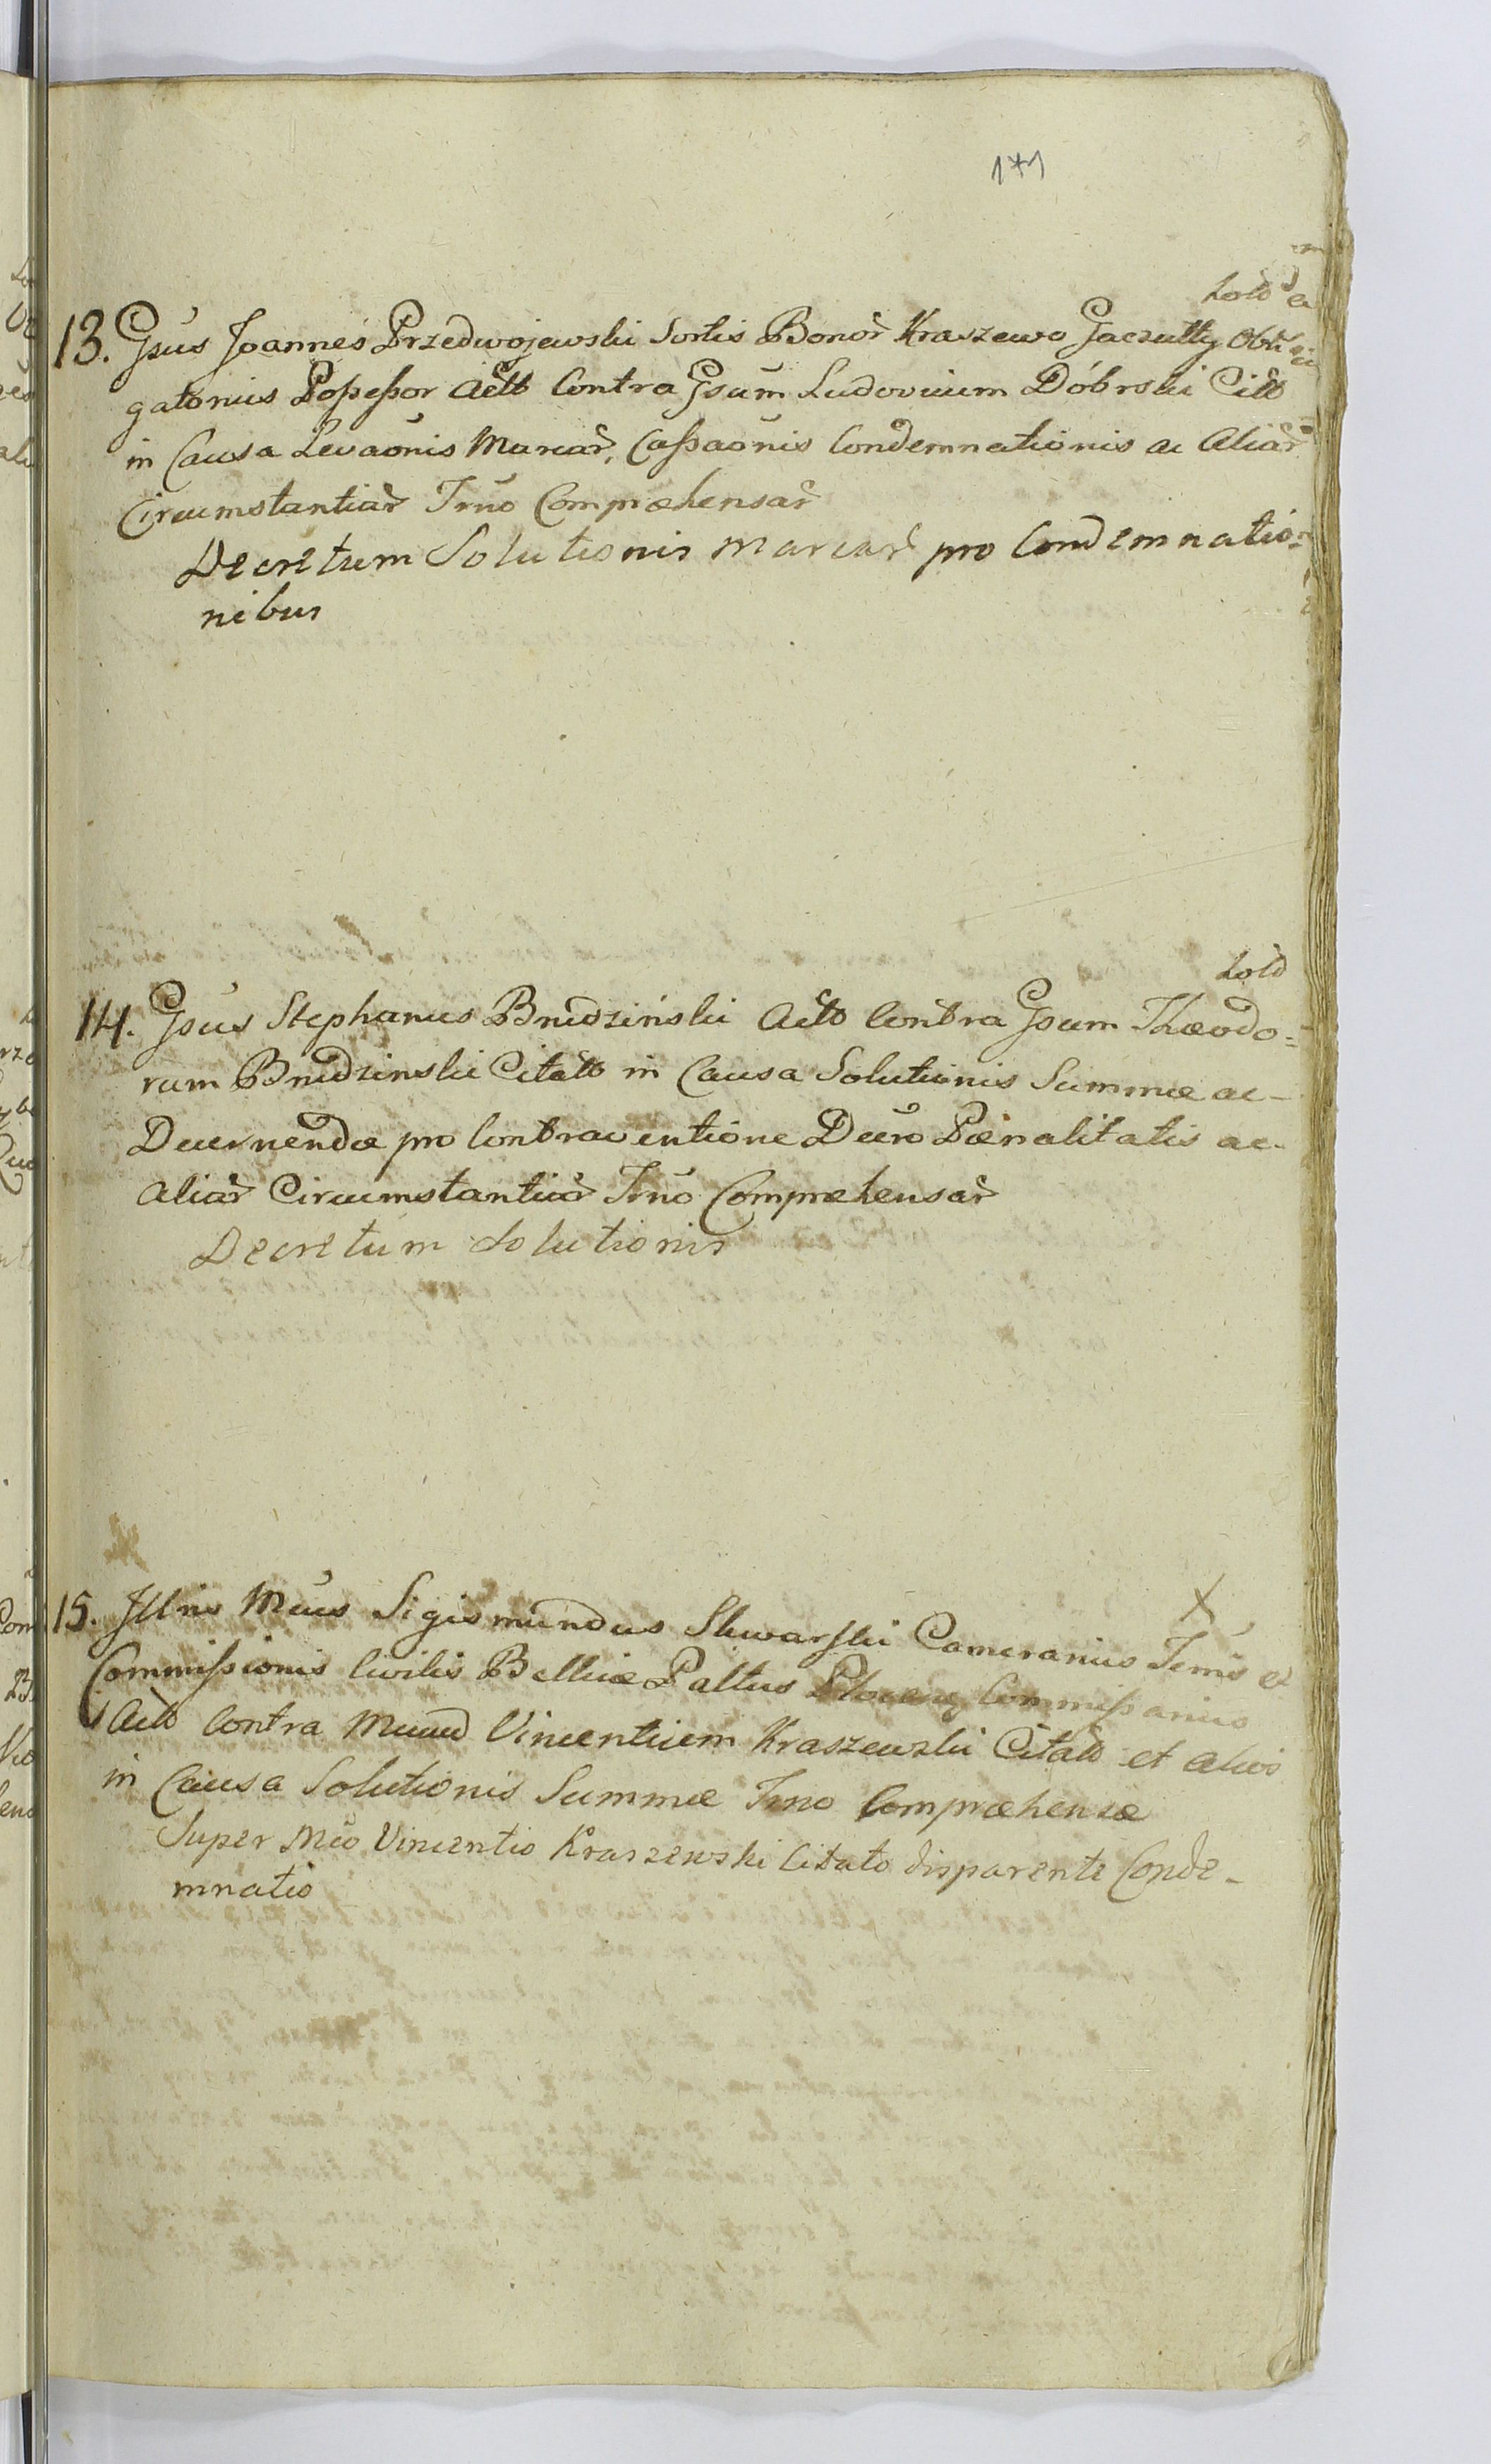 171
Sold
13. Gsus Joannes Przedwojewski Sortis Bonor̃ Kraszewo Gaczułty Obli
gatorius Possessor Actt Contra Gsum Ludovicum Dóbrski Citt
in Causa Levaõnis Marcar̃, Cassaõnis Condemnationis ac Aliar̃
Circumstantiar̃ Trño Compræhensar̃
Decretum Solutionis Marcar̃ pro Condemnatio=
nibus
Sold
14. Gsus Stephanus Brudziński Actt Contra Gsum Thæodo=
rum Brudzinski Citatt in Causa Solutionis Summæ ac-
Decernendæ pro Contraventione Decro Pænalitatis ac-
Aliar̃ Circumstantiar̃ Trño Compræhensar̃
Decretum Solutionis
X
15. Illris Mcus Sigismundus Skwarski Camerarius Terris et
Commissionis Civilis Bellicæ Pallus Plocen Commissarius
Actt Contra Mcum Vincentium Kraszewski Citatt et alios
in Causa Solutionis Summæ Trno Compræhensæ
Super Mco Vincentio Kraszewski Citato disparente Conde-
mnatio